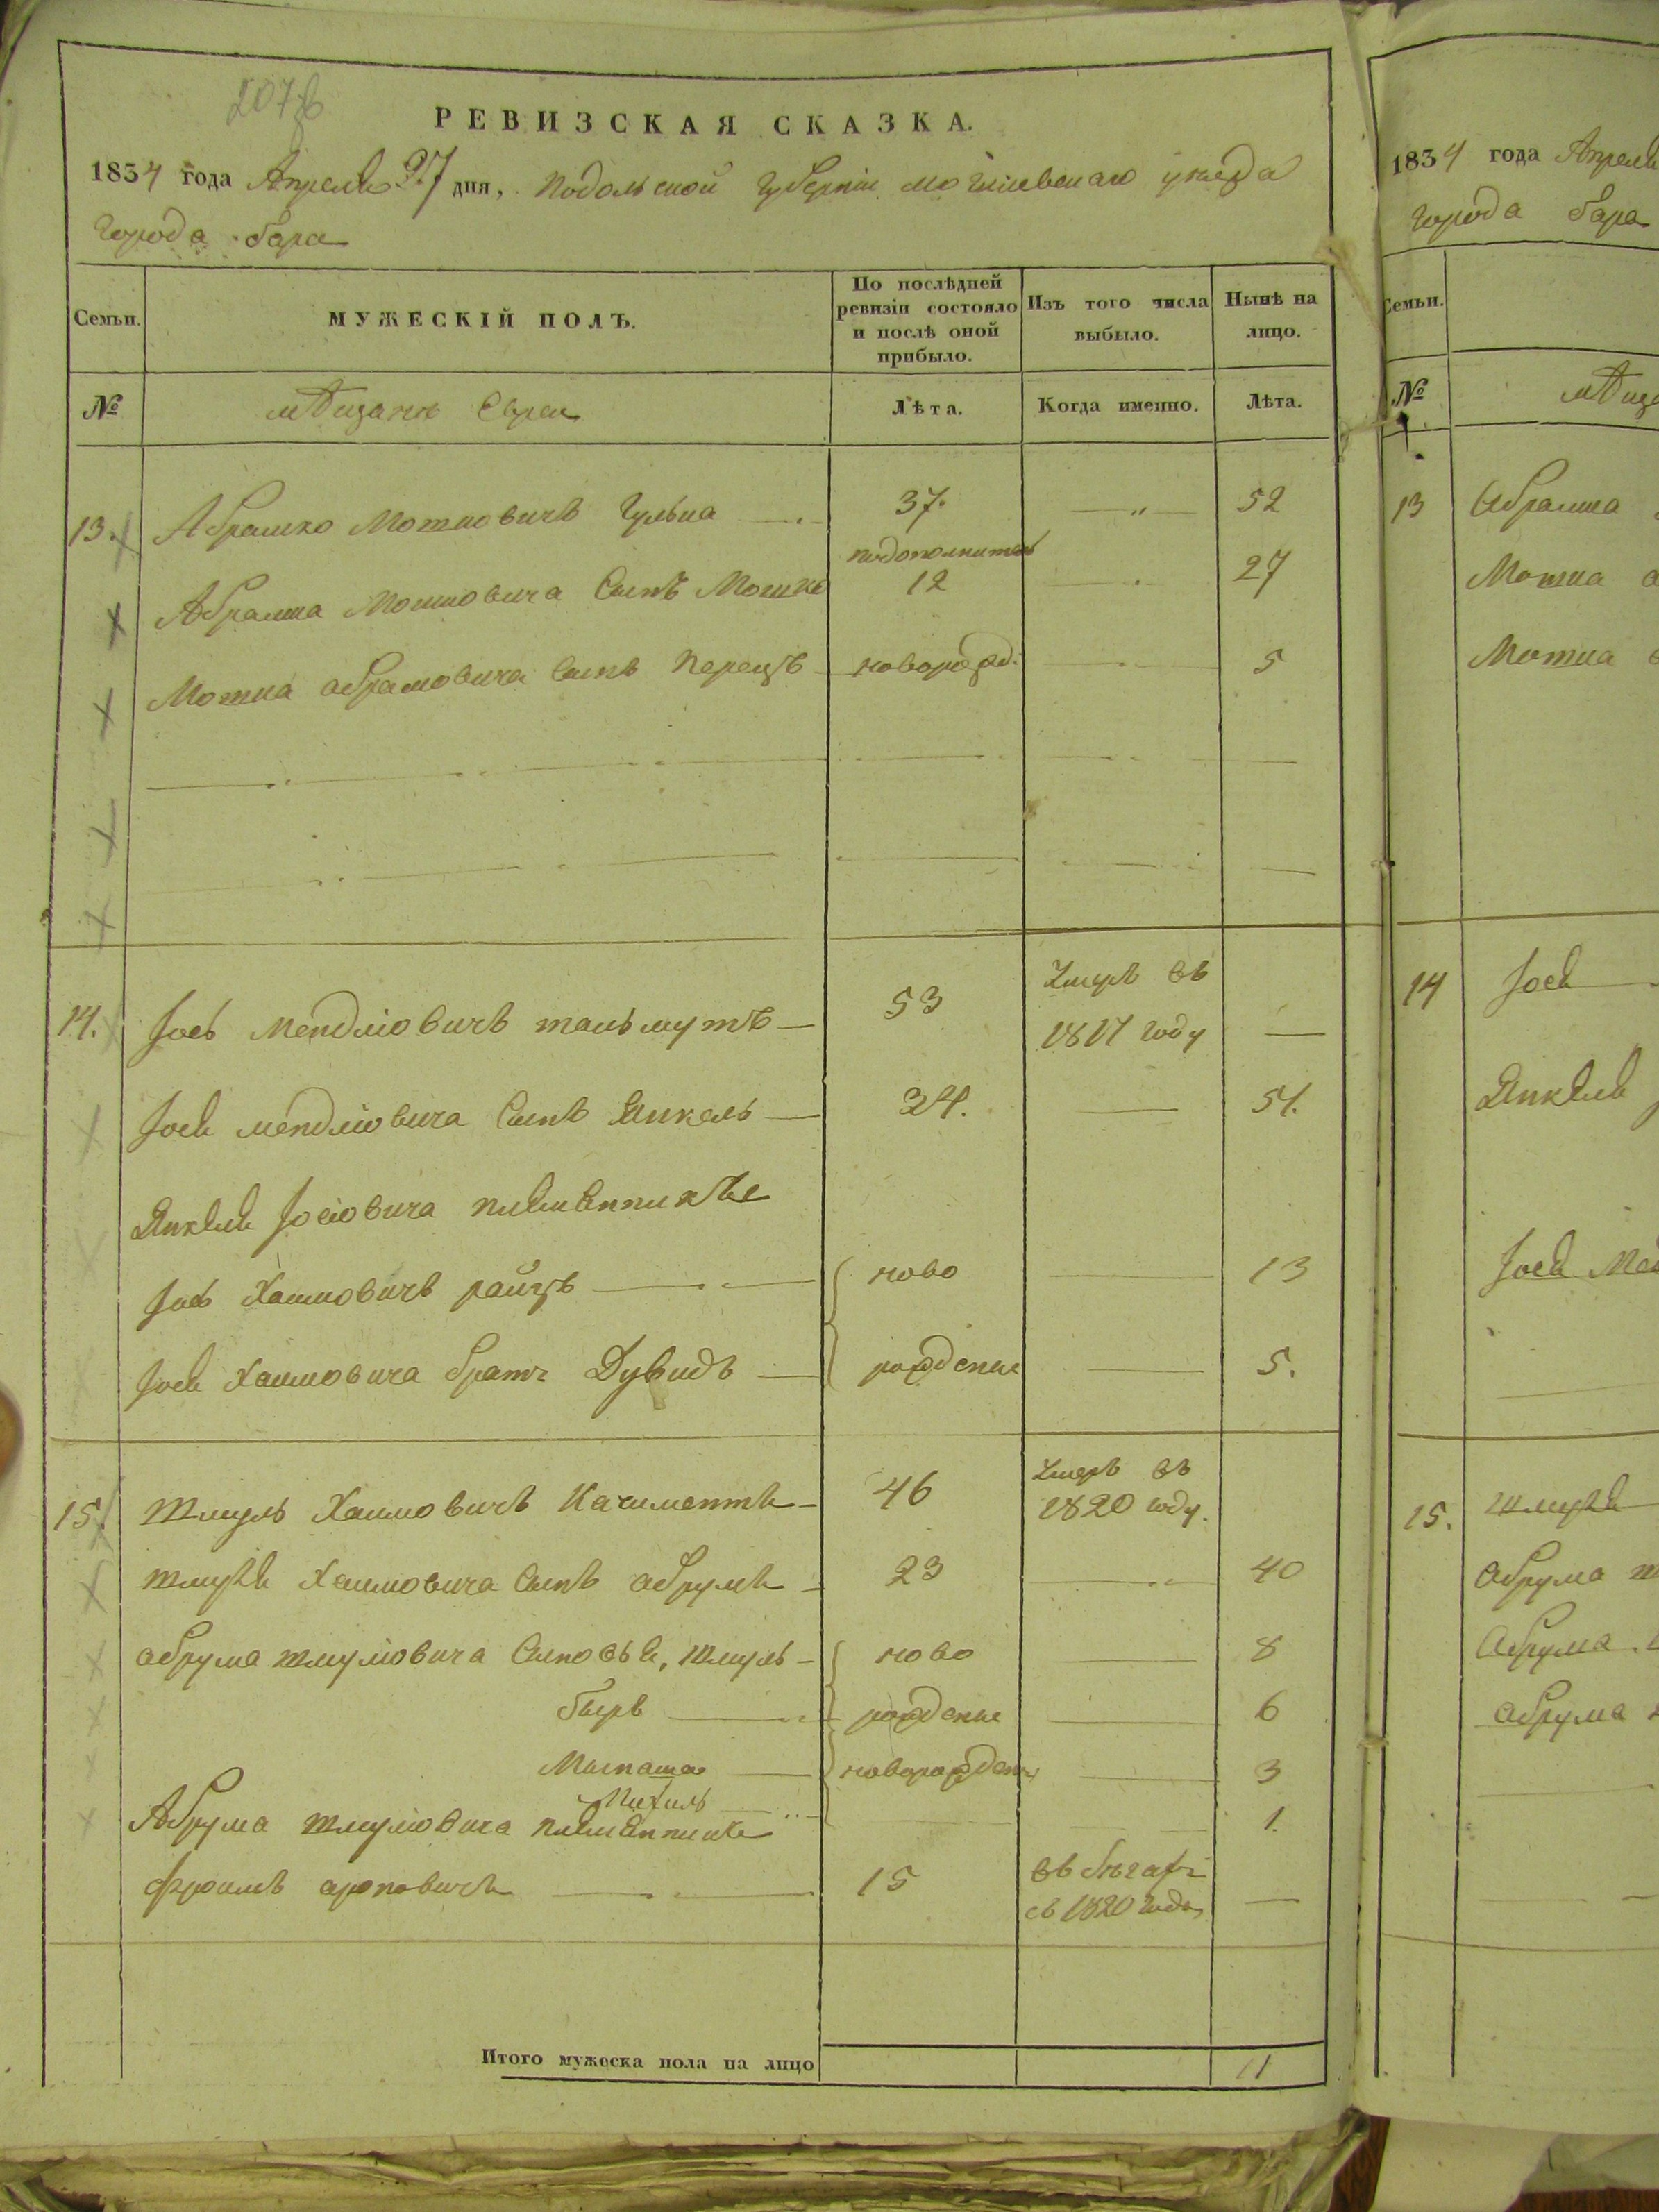 207 в
РЕВИЗСКАЯ СКАЗКА.
1834 года Апреля 27 дня, подольской губернiи могилевскаго уезда
города бара
Семьи.
МУЖЕСКIЙ ПОЛЪ.
По послѣдней ревизiи состояло и послѣ оной прибыло.
Изъ того числа выбыло.
Нынѣ на лицо.
№
мѣщанъ Евреи
Лѣта.
Когда именно.
Лѣта.
13. Абрамко Мошковичъ Гулька 37. 52
Абрамка Мошковича Сынъ Мошко 12 27
Мошка абрамовича сынъ Перецъ новорожд. 5
14. Iось Мендлiовичъ тальмутъ 53 Умеръ въ 1817 году
Iося мендлiовича Сынъ Янкель 34. 51.
Янкеля Iосiовича племянники
Iось Хаимовичъ райзъ ново 13
Iося Хаимовича братъ Дувидъ рожденые 5.
15. Шмуль Хаимовичъ 46 Умеръ въ 1820 году.
Шмуля Хаимовича Сынъ абрумъ 23 40
абрума шмулiовича Сыновья, Шмуль ново 8
беръ рожденые 6
3
Михель 1.
Абрума шмулiовича племянникъ
Фроимъ ароновичъ 15 въ бѣгахъ
съ 1820 года
Итого мужеска пола на лицо 11
1834 года Апреля
города бара
Семьи.
№
мѣща
13 Абрамка
Мошка
Мошка
14 Iося
Янкеля
Iося Мен
15. Шмуля
Абрума
Абрума
абрума